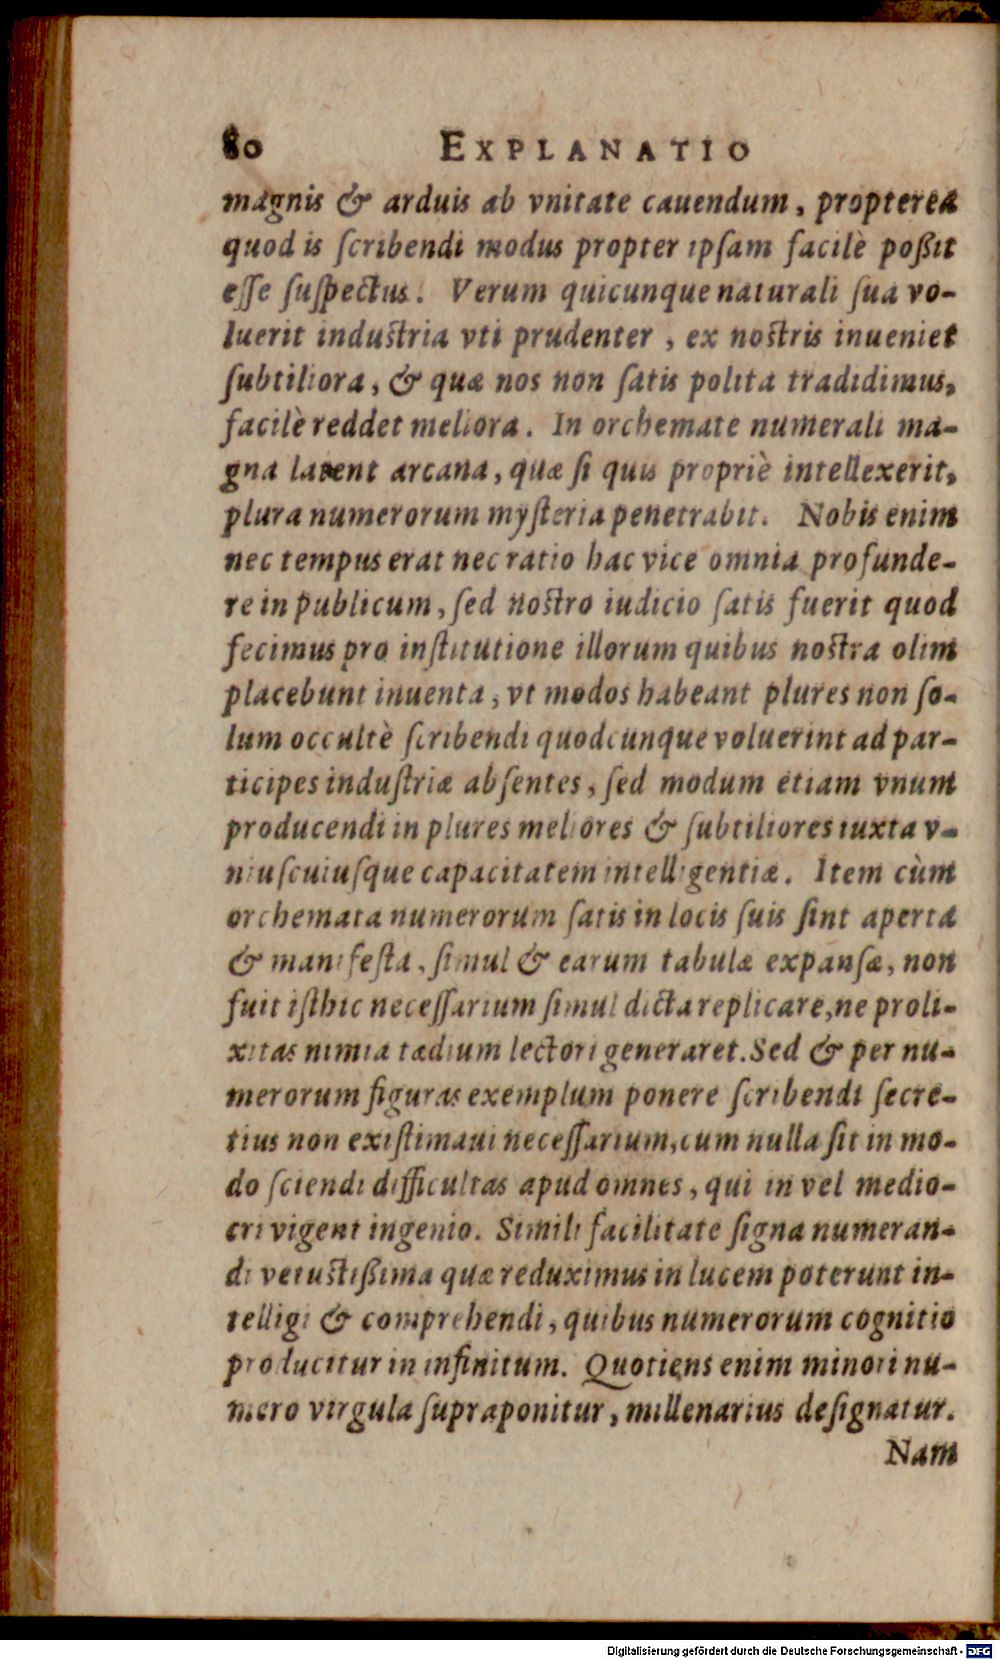 80 EXPLANATIO
magnis & arduis ab vnitate cauendum, propterea
quod is ſcribendi modus propter ipſam facilè poßit
eſſe ſuſpectus. Verum quicunque naturali ſua vo-
luerit induſtria vti prudenter, ex noſtris inueniet
ſubtiliora, & quæ nos non ſatis polita tradidimus,
facilè reddet meliora. In orchemate numerali ma-
gna latent arcana, quæ ſi quis propriè intellexerit,
plura numerorum myſteria penetrabit. Nobis enim
nec tempus erat nec ratio hac vice omnia profunde-
re in publicum, ſed noſtro iudicio ſatis fuerit quod
fecimus pro inſtitutione illorum quibus noſtra olim
placebunt inuenta, vt modos habeant plures non ſo-
lum occultè ſcribendi quodcunque voluerint ad par-
ticipes induſtriæ abſentes, ſed modum etiam vnum
producendi in plures meliores & ſubtiliores iuxta v-
niuſcuiuſque capacitatem intelligentiæ. Item cùm
orchemata numerorum ſatis in locis ſuis ſint aperta
& manifeſta, ſimul & earum tabulæ expanſæ, non
fuit iſthic neceſſarium ſimul dicta replicare, ne proli-
xitas nimia tædium lectori generaret. Sed & per nu-
merorum figuras exemplum ponere ſcribendi ſecre-
tius non exiſtimaui neceſſarium, cum nulla ſit in mo-
do ſciendi difficultas apud omnes, qui in vel medio-
cri vigent ingenio. Simili facilitate ſigna numeran-
di vetuſtißima quæ reduximus in lucem poterunt in-
telligi & comprehendi, quibus numerorum cognitio
producitur in infinitum. Quotiens enim minori nu-
mero virgula ſupraponitur, millenarius deſignatur.
Nam
Digitalisierung gefördert durch die Deutsche Forschungsgemeinschaft - DFG